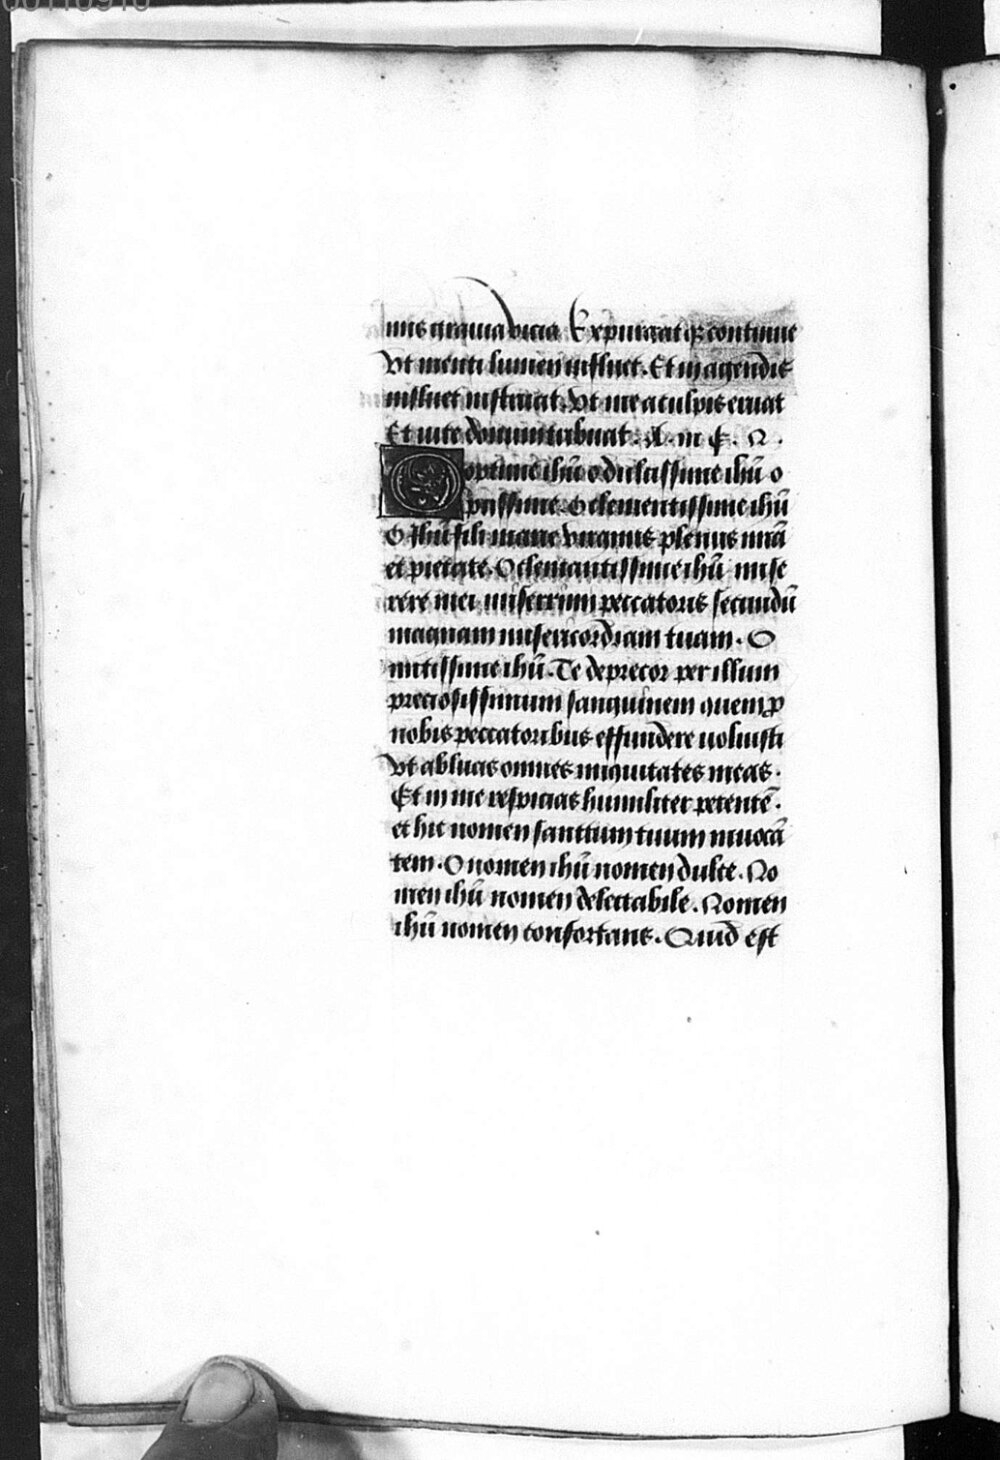 mis grauia vicia Expurgatqȝ continue
Vt menti lumen influet. Et in agendis
influet instruat. Vt me a culpis eruat
Et iure
O optime ihū o dulcissime ihū o
piissime. O clementissime ihū
O Ihū fili marie virginis plenus mīa
et pietate. O clemantissime ihū mise
rere mei miserrimi peccatoris secundū
magnam misericordiam tuam. O
mitissime ihū. Te deprecor per illum
preciosissimum sanguinem quem ꝓ
nobis peccatoribus effundere uoluisti
Vt abluas omnes iniquitates meas.
Et in me respicias humiliter petentē.
et hic nomen sanctum tuum inuocā
tem. O nomen ihū nomen dulce. No
men ihū nomen delectabile. Nomen
ihū nomen confortans. Quid est